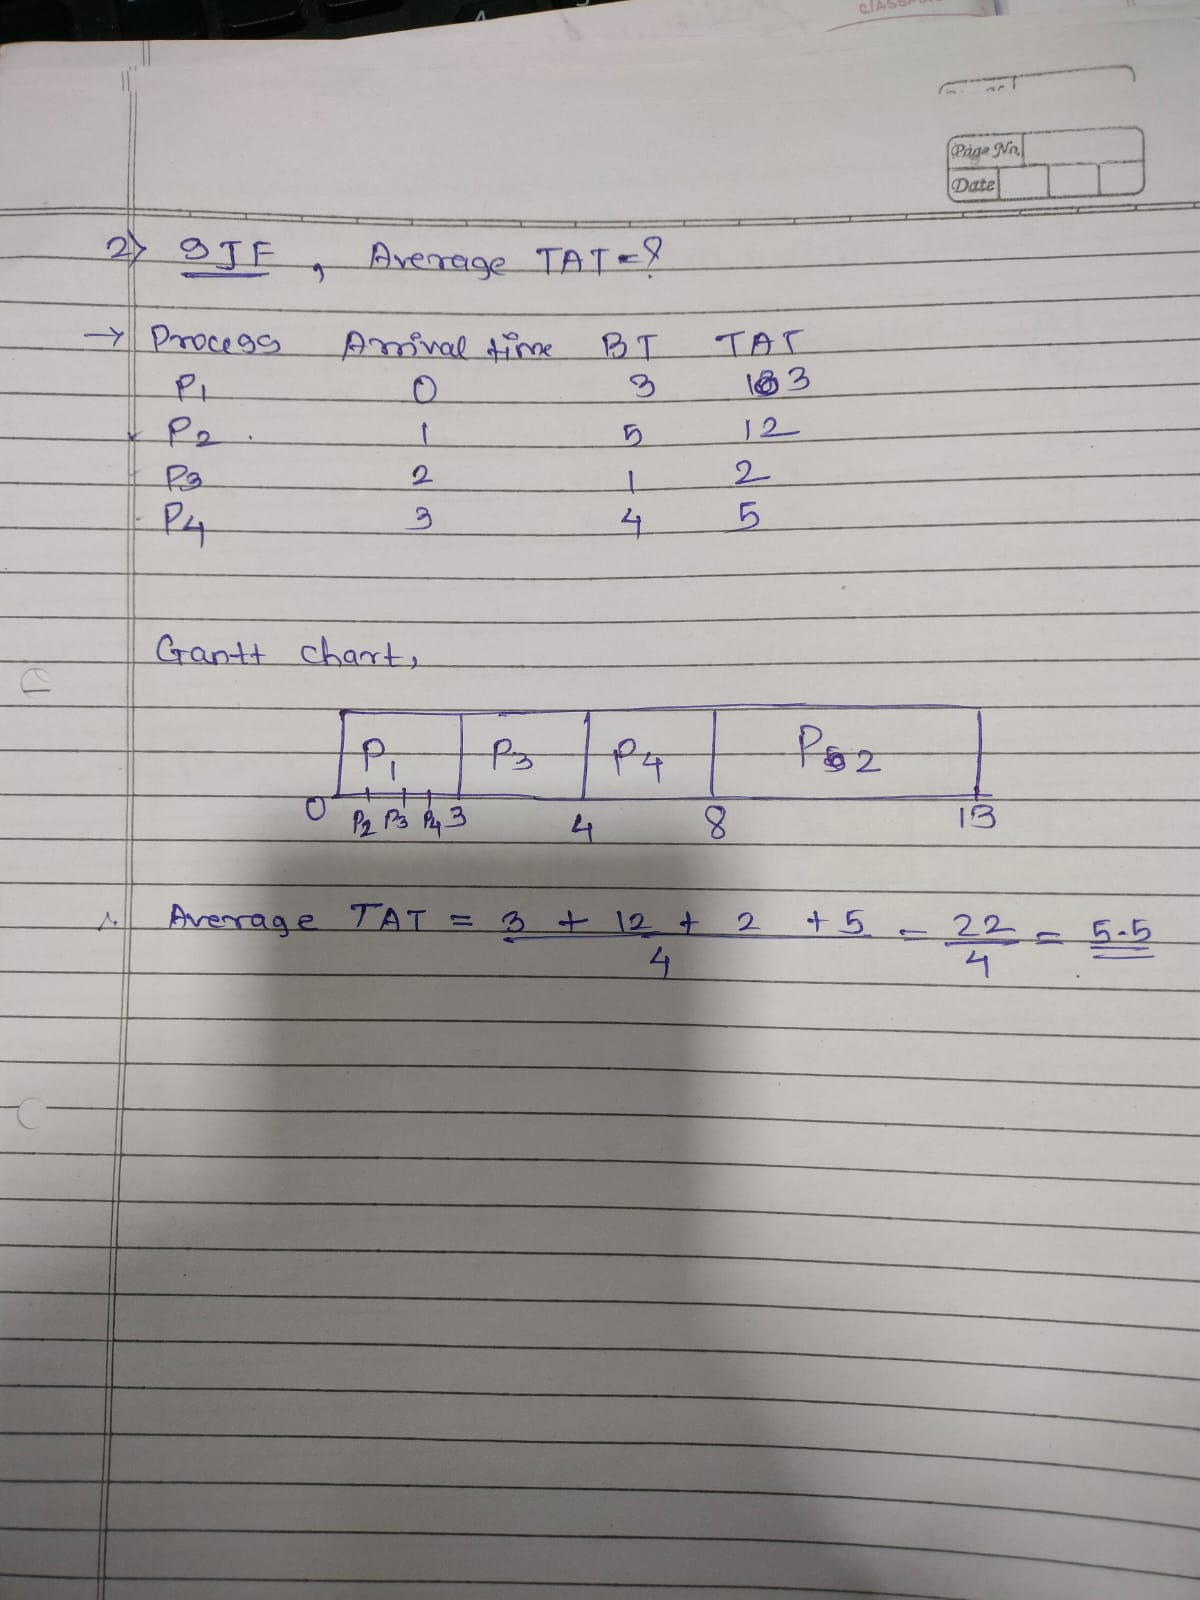 Page No.
Date
2) SJF, Average TAT = ?
→ Process Arrival time BT TAT
P1 0 3 3
P2 1 5 12
P3 2 1 2
P4 3 4 5
Gantt chart,
P1 P3 P4 P2
0 P2 P3 P4 3 4 8 13
∴ Average TAT = 3 + 12 + 2 + 5 = 22 = 5.5
4 4